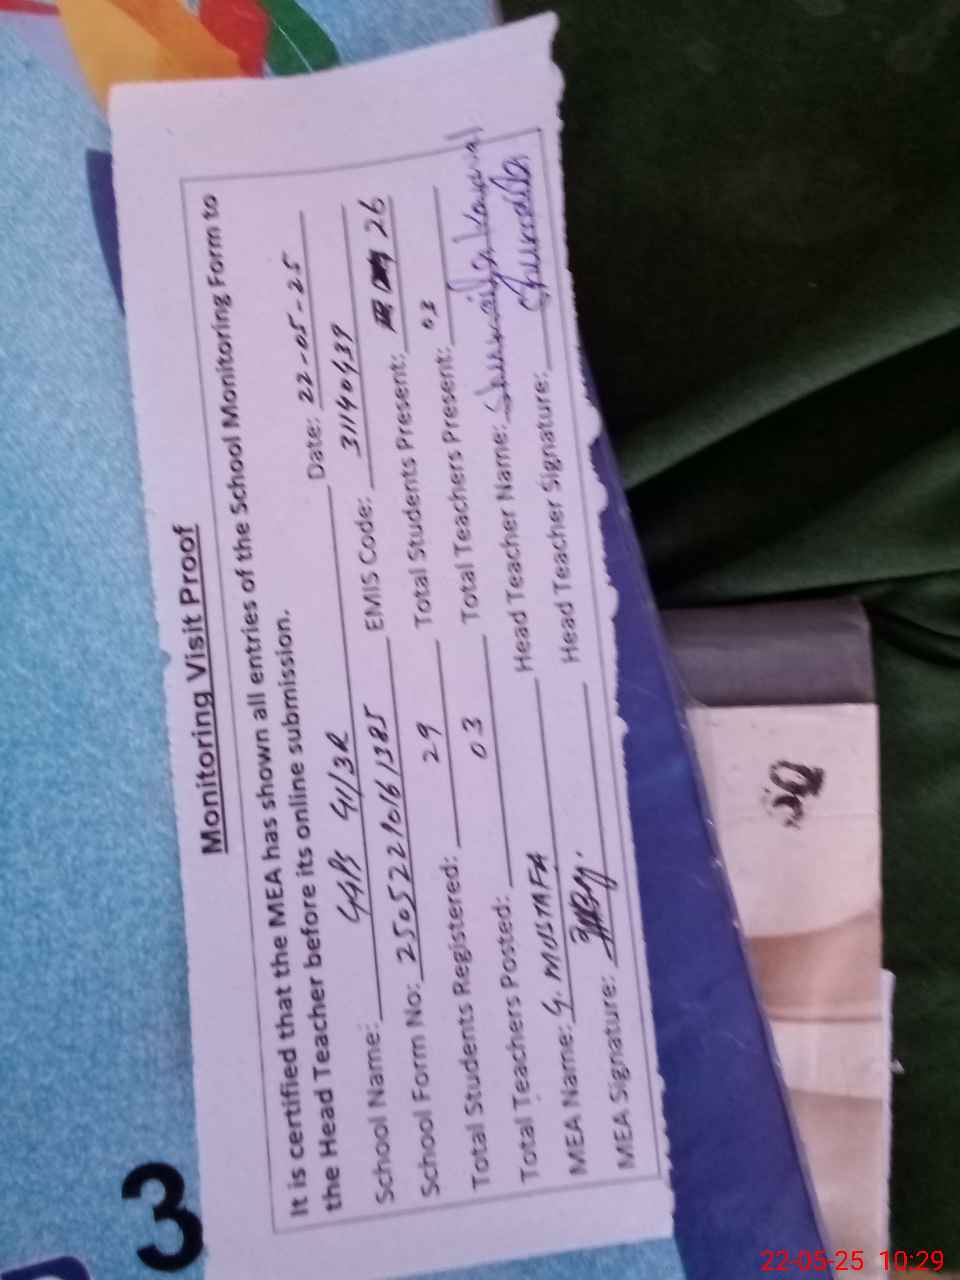 Monitoring Visit Proof
It is certified that the MEA has shown all entries of the School Monitoring Form to
the Head Teacher before its online submission.
School Name: GGPS 41/3R Date: 22-05-25
School Form No: 25052210161385 EMIS Code: 31140439
Total Students Registered: 29 Total Students Present: 26
Total Teachers Posted: 03 Total Teachers Present: 03
MEA Name: G. MUSTAFA Head Teacher Name: Shumaila Kanwal
MEA Signature: Head Teacher Signature: Shumaila
3
22-05-25 10:29